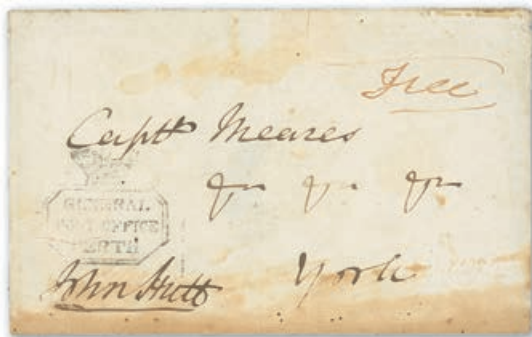 Free
Capt Meares
&c &c &c
GENERAL
POST OFFICE
PERTH
John Hutt
York